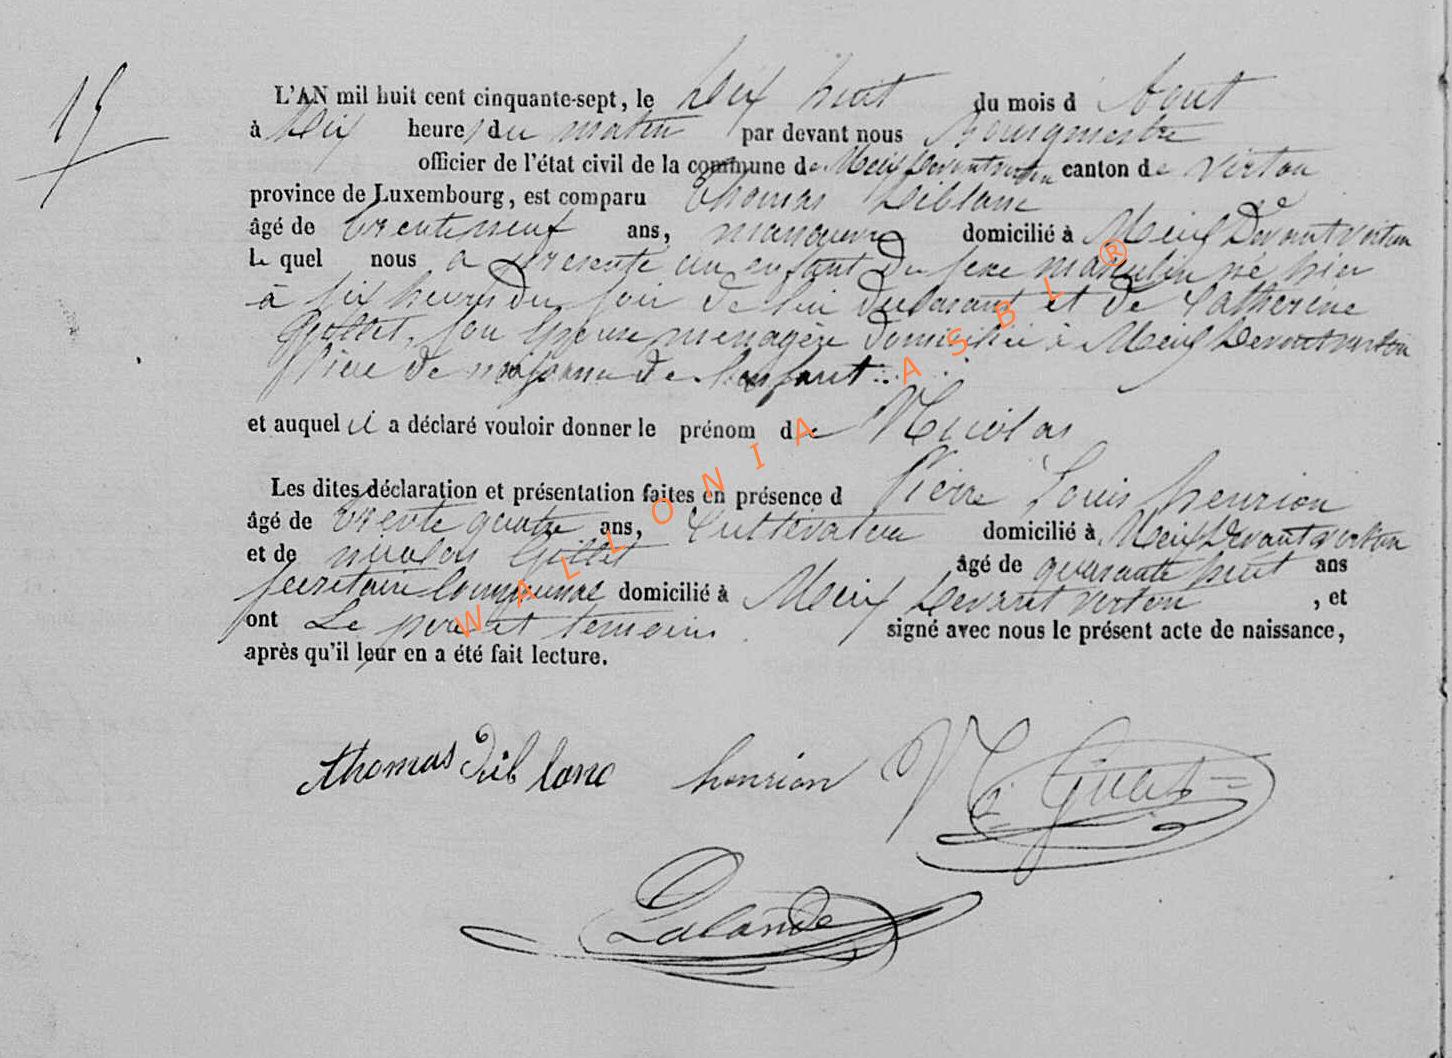 15
L'AN mil huit cent cinquante-sept, le Dix huit du mois d'Aout
à Dix heures du matin par devant nous Bourgmestre
officier de l'état civil de la commune de Meix Devant virton canton de Virton
province de Luxembourg, est comparu Thomas Diblanc
âgé de trente neuf ans, manœuvre domicilié à Meix Devant virton
le quel nous a présenté un enfant du sexe masculin né hier
à six heures du soir de lui declarant et de Catherine
son épouse menagère domiciliée à Meix Devant virton
Père de l'enfant
et auquel il a déclaré vouloir donner le prénom de Nicolas
Les dites déclaration et présentation faites en présence d Pierre Louis henrion
âgé de trente quatre ans, Cultivateur domicilié à Meix Devant virton
et de nicolas Gillet âgé de quarante huit ans
secretaire Communal domicilié à Meix Devant virton , et
ont Le pere et temoins signé avec nous le présent acte de naissance,
après qu'il leur en a été fait lecture.
thomas Diblanc henrion N Gillet
Lalande
WALLONIA ASBL ®